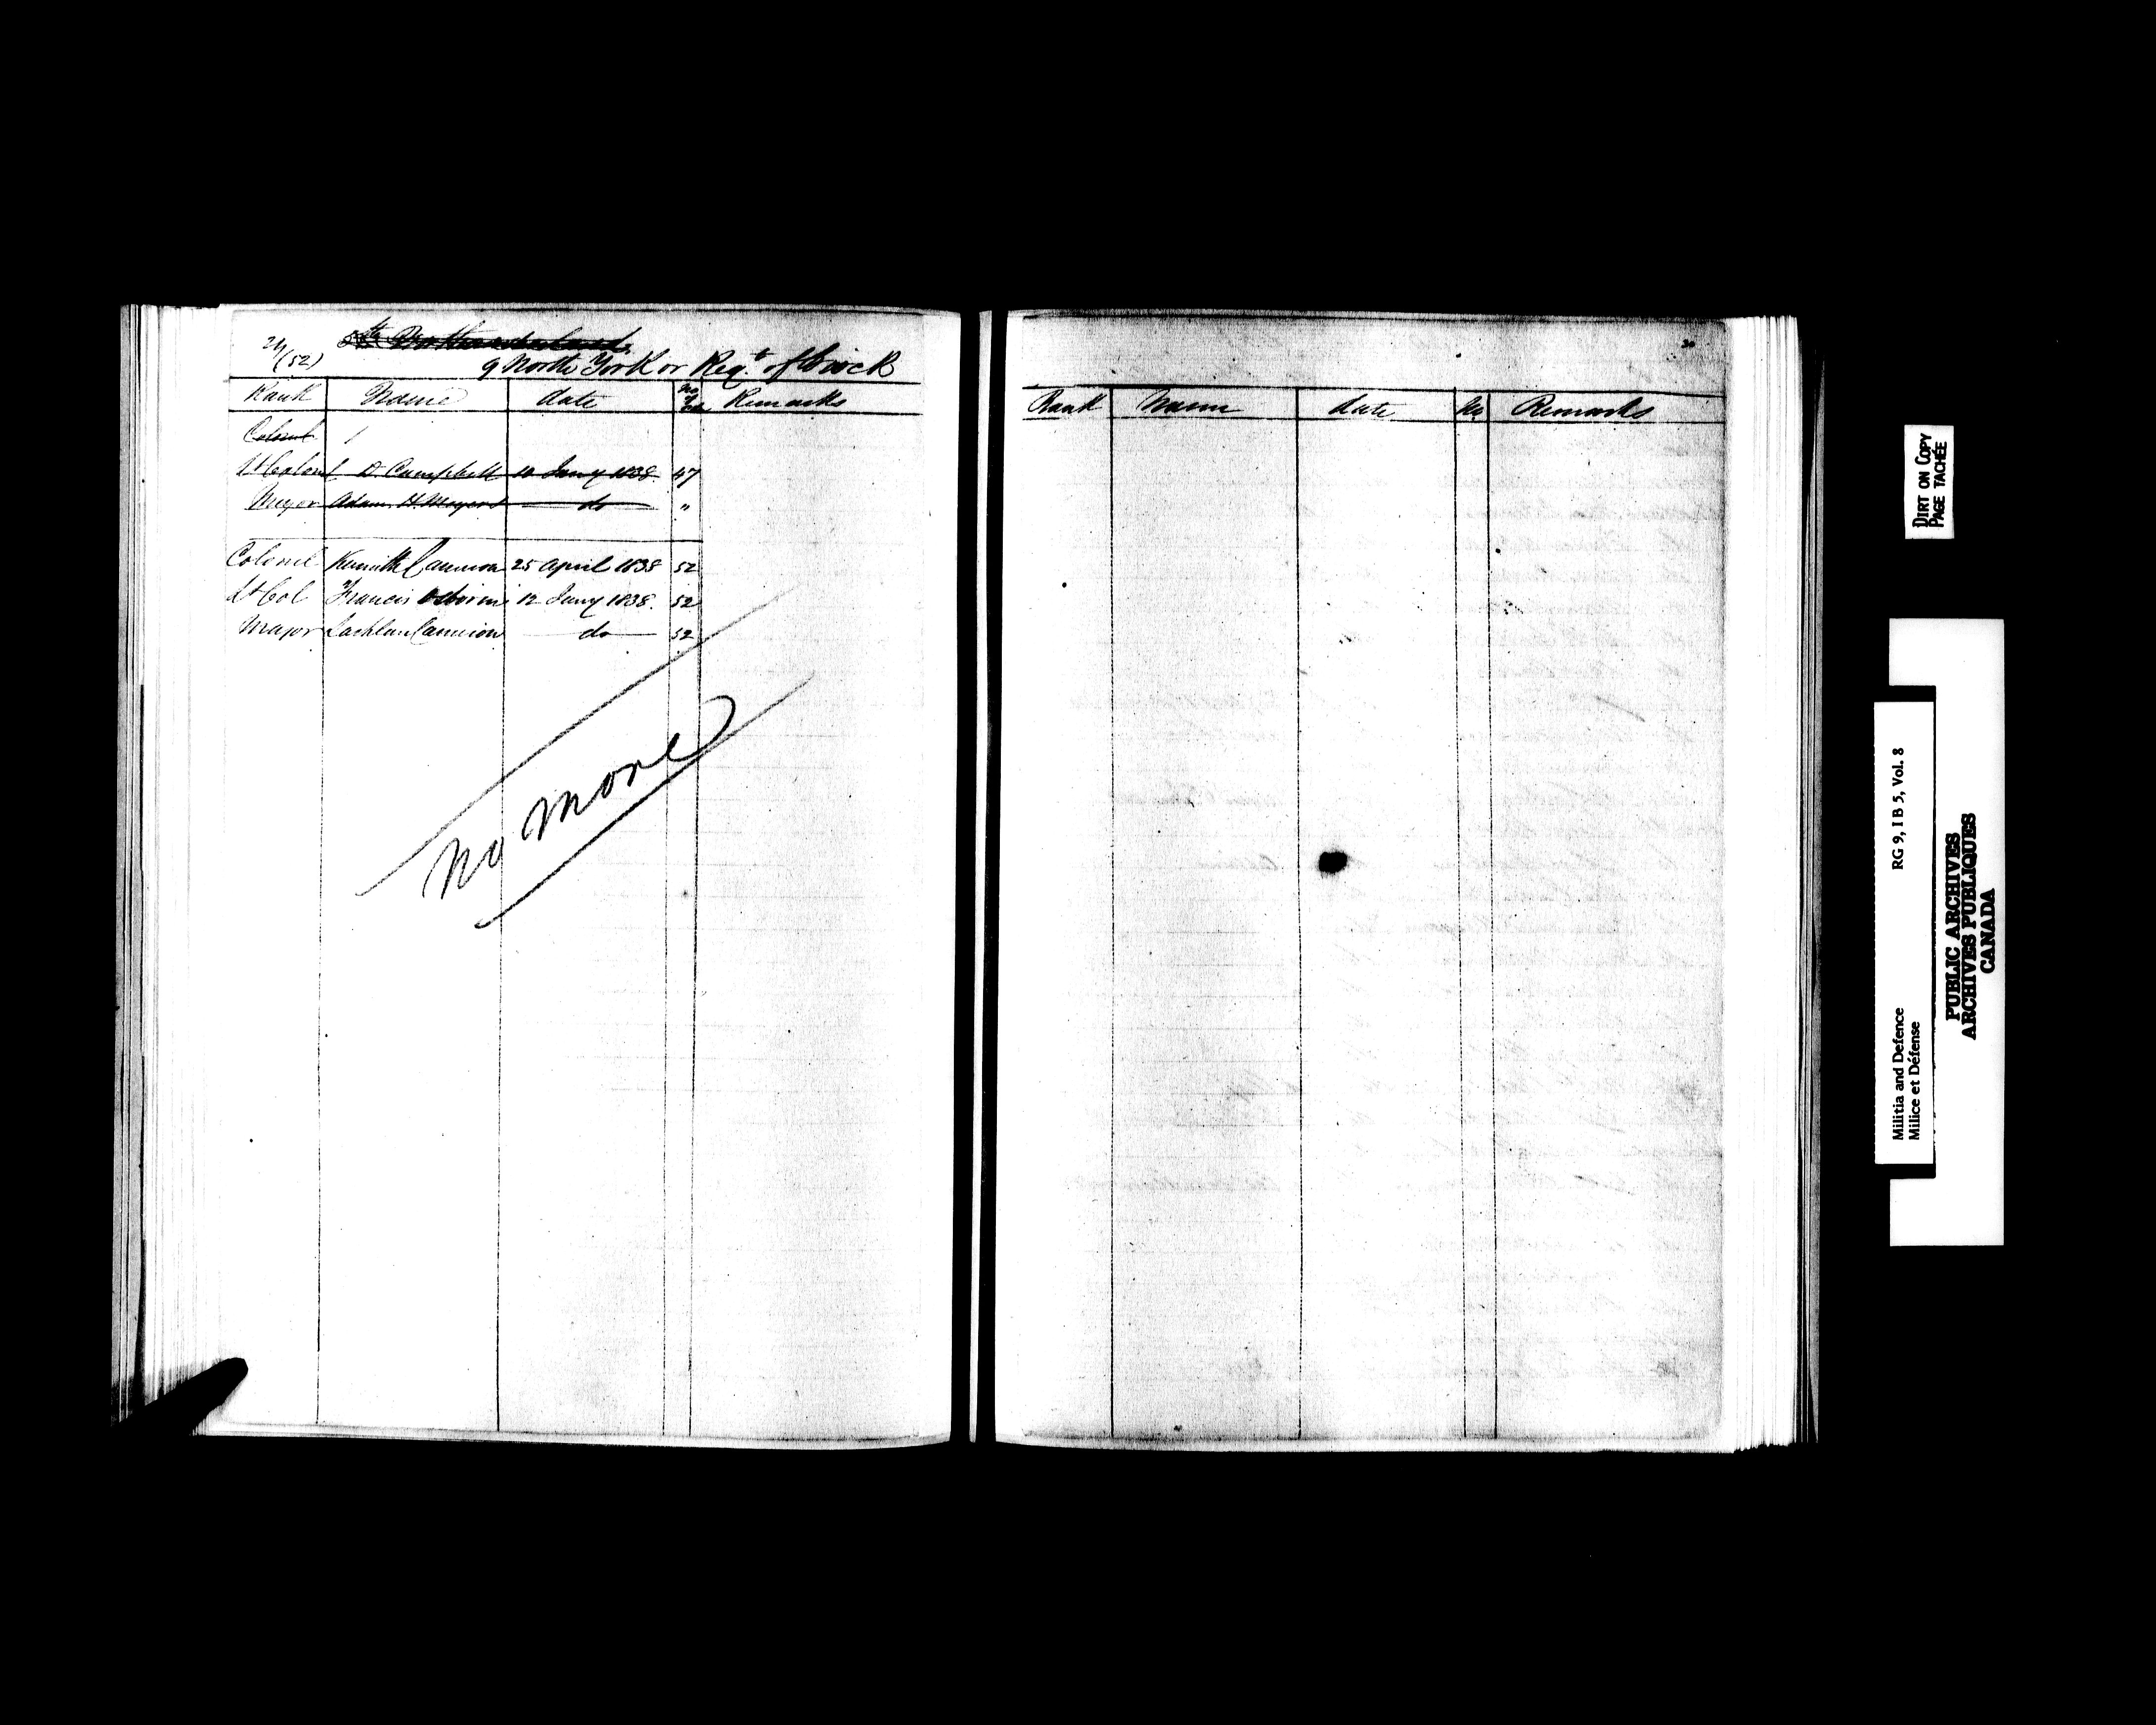 24
(52)
5th Northumberland
9 North York or Regt of Brock
Rank Name date No Remarks
Colonel
Lt Colonel D. Campbell 10 Jany 1838. 47
Major Adam H. Meyers do "
Colonel Kenneth Cameron 25 April 1838 52
Lt Col Francis Osborne 12 Jany 1838. 52
Major Lachlan Cameron do 52
No More
Rank Name date No Remarks
DIRT ON COPY
PAGE TACHÉE
Militia and Defence RG 9, I B 5, Vol. 8
Milice et Défense
PUBLIC ARCHIVES
ARCHIVES PUBLIQUES
CANADA